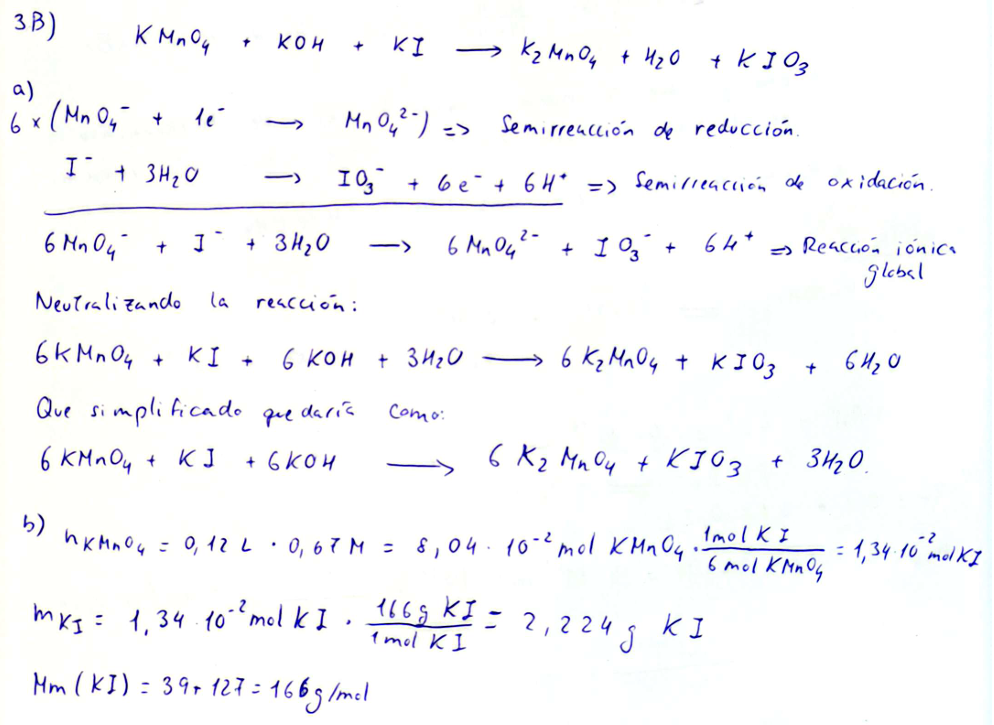 3B) KMnO₄ + KOH + KI → K₂MnO₄ + H₂O + KIO₃
a)
6 × (MnO₄⁻ + 1e⁻ → MnO₄²⁻) => Semirreacción de reducción.
I⁻ + 3H₂O → IO₃⁻ + 6e⁻ + 6H⁺ => Semirreacción de oxidación.
6MnO₄⁻ + I⁻ + 3H₂O → 6MnO₄²⁻ + IO₃⁻ + 6H⁺ => Reacción iónica
global
Neutralizando la reacción:
6KMnO₄ + KI + 6KOH + 3H₂O → 6K₂MnO₄ + KIO₃ + 6H₂O
Que simplificado quedaría como:
6KMnO₄ + KI + 6KOH → 6K₂MnO₄ + KIO₃ + 3H₂O.
b) nKMnO₄ = 0,12 L · 0,67 M = 8,04 · 10⁻² mol KMnO₄ · 1mol KI / 6 mol KMnO₄ = 1,34·10⁻² mol KI
mKI = 1,34·10⁻² mol KI · 166g KI / 1mol KI = 2,224 g KI
Mm (KI) = 39 + 127 = 166g/mol